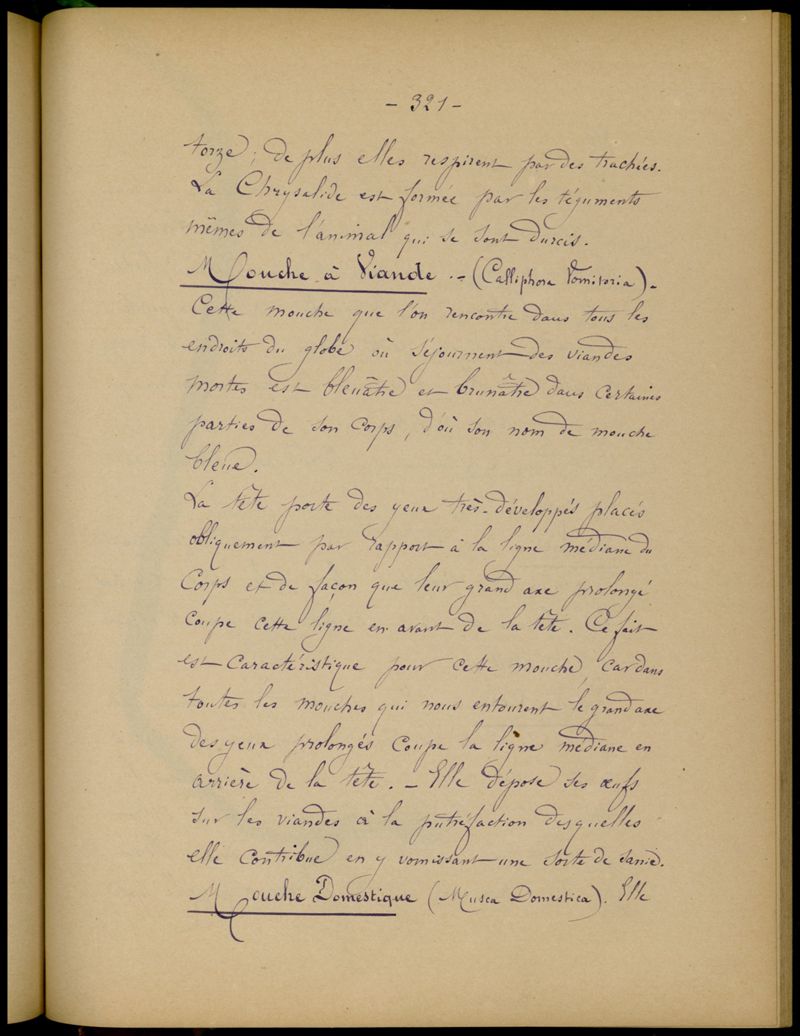 - 321 -
torze ; de plus elles respirent par des trachées.
La Chrysalide est formée par les téguments
mêmes de l'animal qui se sont durcis.
Mouche à Viande. - (Calliphora Vomitoria). -
Cette mouche que l'on rencontre dans tous les
endroits du globe où séjournent des viandes
mortes est bleuâtre et brunâtre dans certaines
parties de son corps, d'où son nom de mouche
bleue.
La tête porte des yeux très-développés placés
obliquement par rapport à la ligne médiane du
Corps et de façon que leur grand axe prolongé
coupe cette ligne en avant de la tête. Ce fait
est caractéristique pour cette mouche, car dans
toutes les mouches qui nous entourent le grand axe
des yeux prolongés coupe la ligne médiane en
arrière de la tête. - Elle dépose ses œufs
sur les viandes à la putréfaction desquelles
elle contribue en y vomissant une sorte de sanie.
Mouche Domestique (Musca Domestica). Elle